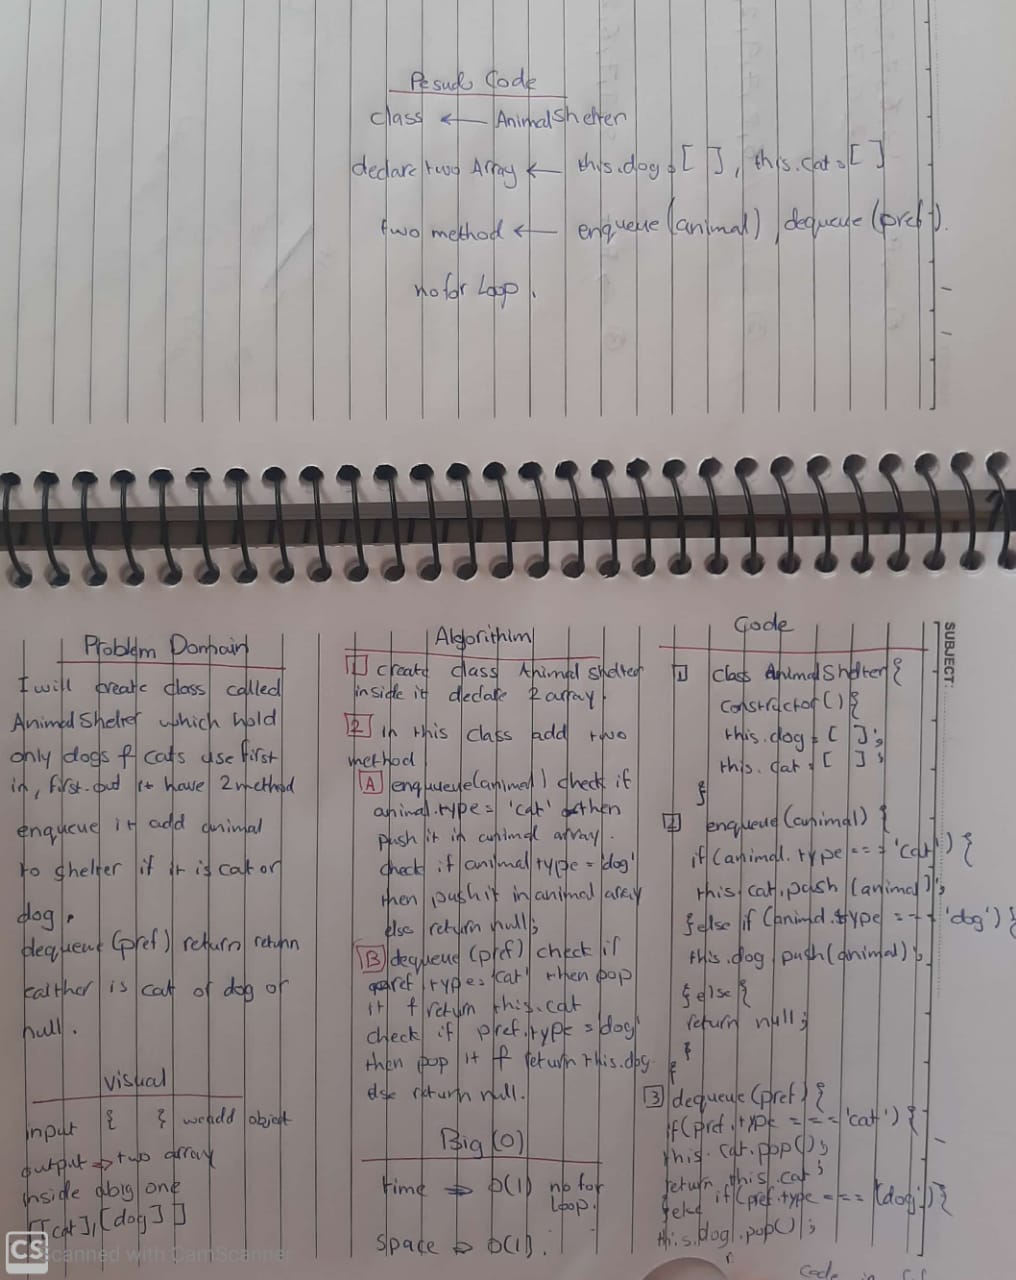 Pesudo Code
class ← AnimalShelter
declare two Array ← this.dog=[ ], this.cat=[ ]
two method ← enqueue(animal), dequeue(pref).
no for Loop.
Problem Domain
I will create class called
AnimalShelter which hold
only dogs & cats use first
in, first-out it have 2 method
enqueue it add animal
to shelter if it is cat or
dog.
dequeue (pref) return return
eaither is cat of dog or
null.
visual
input { } we add object
output ⇒ two array
inside a big one
[[cat],[dog]]
Algorithim
1 create class Animal shelter
inside it declare 2 array
2 in this class add two
method
A enqueue(animal) check if
animal.type= 'cat' then
push it in animal array.
check if animal type = 'dog'
then push it in animal array
else return null;
B dequeue (pref) check if
pref.type= 'cat' then pop
it & return this.cat
check if pref.type = 'dog'
then pop it & return this.dog
else return null.
Big (O)
time ⇒ O(1) no for
loop.
space ⇒ O(1).
SUBJECT:
Code
1 class AnimalShelter {
constructor () {
this.dog = [ ];
this.cat = [ ];
}
2 enqueue (animal) {
if (animal.type === 'cat') {
this.cat.push (animal);
} else if (animal.type === 'dog') {
this.dog.push (animal);
} else {
return null;
}
}
3 dequeue (pref) {
if (pref.type === 'cat') {
this.cat.pop();
return this.cat;
} else if (pref.type === 'dog') {
this.dog.pop();
code in
CS Scanned with CamScanner